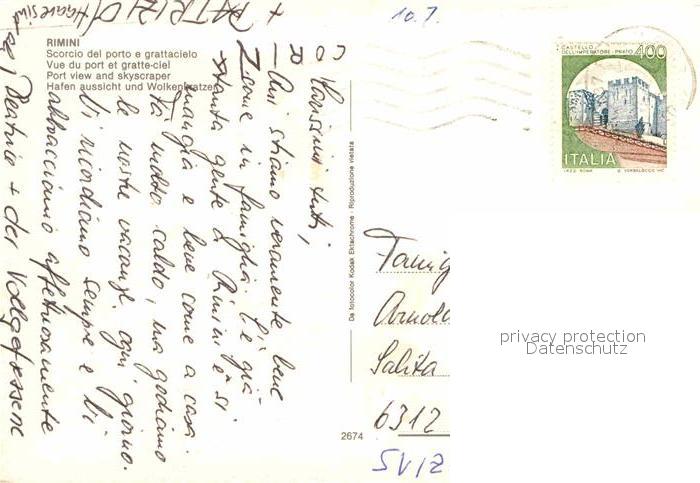 10.7.
RIMINI
Scorcio del porto e grattacielo
Vue du port et gratte-ciel
Port view and skyscraper
Hafen aussicht und Wolkenkratzer
Carissimi tutti,
Qui stiamo veramente bene
come in famiglia. C'è già
tanta gente a Rimini e si
mangia e beve come a casa.
Fa molto caldo, ma godiamo
le nostre vacanze ogni giorno.
Vi ricordiamo sempre e Vi
abbracciamo affettuosamente
Beatrice + der Vollgefressene
+ PATRIZIO
Da fotocolor Kodak Ektachrome - Riproduzione vietata
2674
CASTELLO
DELL'IMPERATORE - PRATO
400
ITALIA
I.P.Z.S. ROMA
Famig
Arnold
Salita
6312
SVIZ
privacy protection
Datenschutz